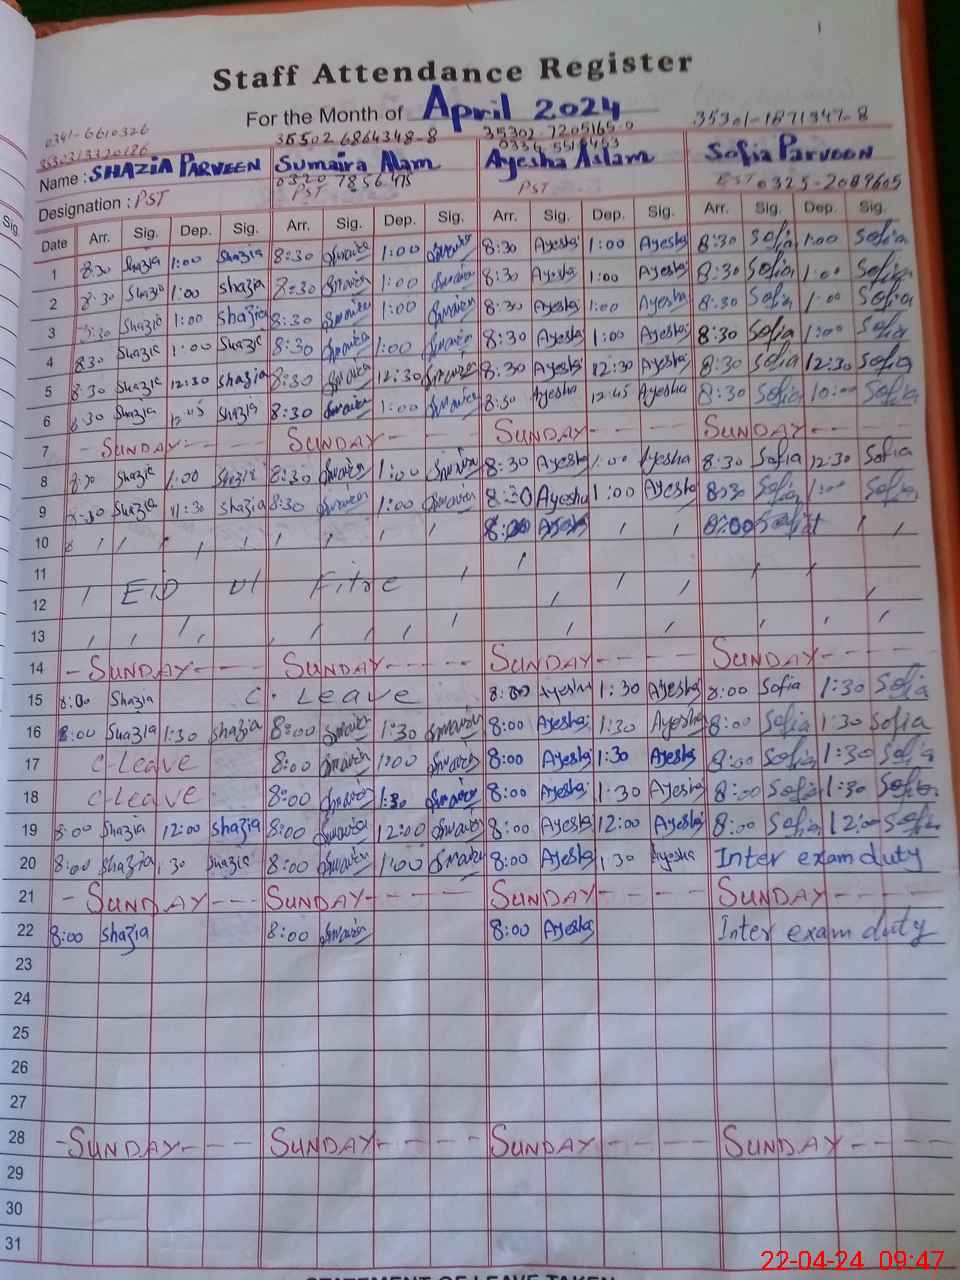 Staff Attendance Register
For the Month of April 2024
0341-6610326 35502 6864348-8 35302-7205165-0 35301-1871347-8
Name : SHAZIA PARVEEN Sumaira Alam Ayesha Aslam Sofia Parveen
0320 7856475 0325-2089605
Designation : PST PST PST EST
Date Arr. Sig. Dep. Sig. Arr. Sig. Dep. Sig. Arr. Sig. Dep. Sig. Arr. Sig. Dep. Sig.
1 8:30 Shazia 1:00 Shazia 8:30 1:00 8:30 Ayesha 1:00 Ayesha 8:30 Sofia 1:00 Sofia
2 8:30 Shazia 1:00 Shazia 8:30 1:00 8:30 Ayesha 1:00 Ayesha 8:30 Sofia 1:00 Sofia
3 8:30 Shazia 1:00 Shazia 8:30 1:00 8:30 Ayesha 1:00 Ayesha 8:30 Sofia 1:00 Sofia
4 8:30 Shazia 1:00 Shazia 8:30 1:00 8:30 Ayesha 1:00 Ayesha 8:30 Sofia 1:00 Sofia
5 8:30 Shazia 12:30 Shazia 8:30 12:30 8:30 Ayesha 12:30 Ayesha 8:30 Sofia 12:30 Sofia
6 8:30 Shazia 12:45 Shazia 8:30 1:00 8:30 Ayesha 12:45 Ayesha 8:30 Sofia 10:00 Sofia
7 - SUNDAY - - - SUNDAY - - SUNDAY - - - SUNDAY - - -
8 8:30 Shazia 1:00 Shazia 8:30 1:00 8:30 Ayesha 1:00 Ayesha 8:30 Sofia 12:30 Sofia
9 8:30 Shazia 11:30 Shazia 8:30 1:00 8:30 Ayesha 1:00 Ayesha 8:30 Sofia 1:00 Sofia
10 8:00 Ayesha 8:00 Sofia
11
EID ul Fitre
12
13
14 - SUNDAY - - - SUNDAY - - - - SUNDAY - - - - SUNDAY - - - -
15 8:00 Shazia C. Leave 8:00 Ayesha 1:30 Ayesha 8:00 Sofia 1:30 Sofia
16 8:00 Shazia 1:30 Shazia 8:00 1:30 8:00 Ayesha 1:30 Ayesha 8:00 Sofia 1:30 Sofia
17 C-Leave 8:00 1:00 8:00 Ayesha 1:30 Ayesha 8:00 Sofia 1:30 Sofia
18 C-Leave 8:00 1:30 8:00 Ayesha 1:30 Ayesha 8:00 Sofia 1:30 Sofia
19 8:00 Shazia 12:00 Shazia 8:00 12:00 8:00 Ayesha 12:00 Ayesha 8:00 Sofia 12:00 Sofia
20 8:00 Shazia 1:30 Shazia 8:00 1:00 8:00 Ayesha 1:30 Ayesha Inter exam duty
21 - SUNDAY - - - SUNDAY - - - - SUNDAY - - - - SUNDAY - - - -
22 8:00 Shazia 8:00 8:00 Ayesha Inter exam duty
23
24
25
26
27
28 - SUNDAY - - - SUNDAY - - - - SUNDAY - - - - SUNDAY - - - -
29
30
31
22-04-24 09:47